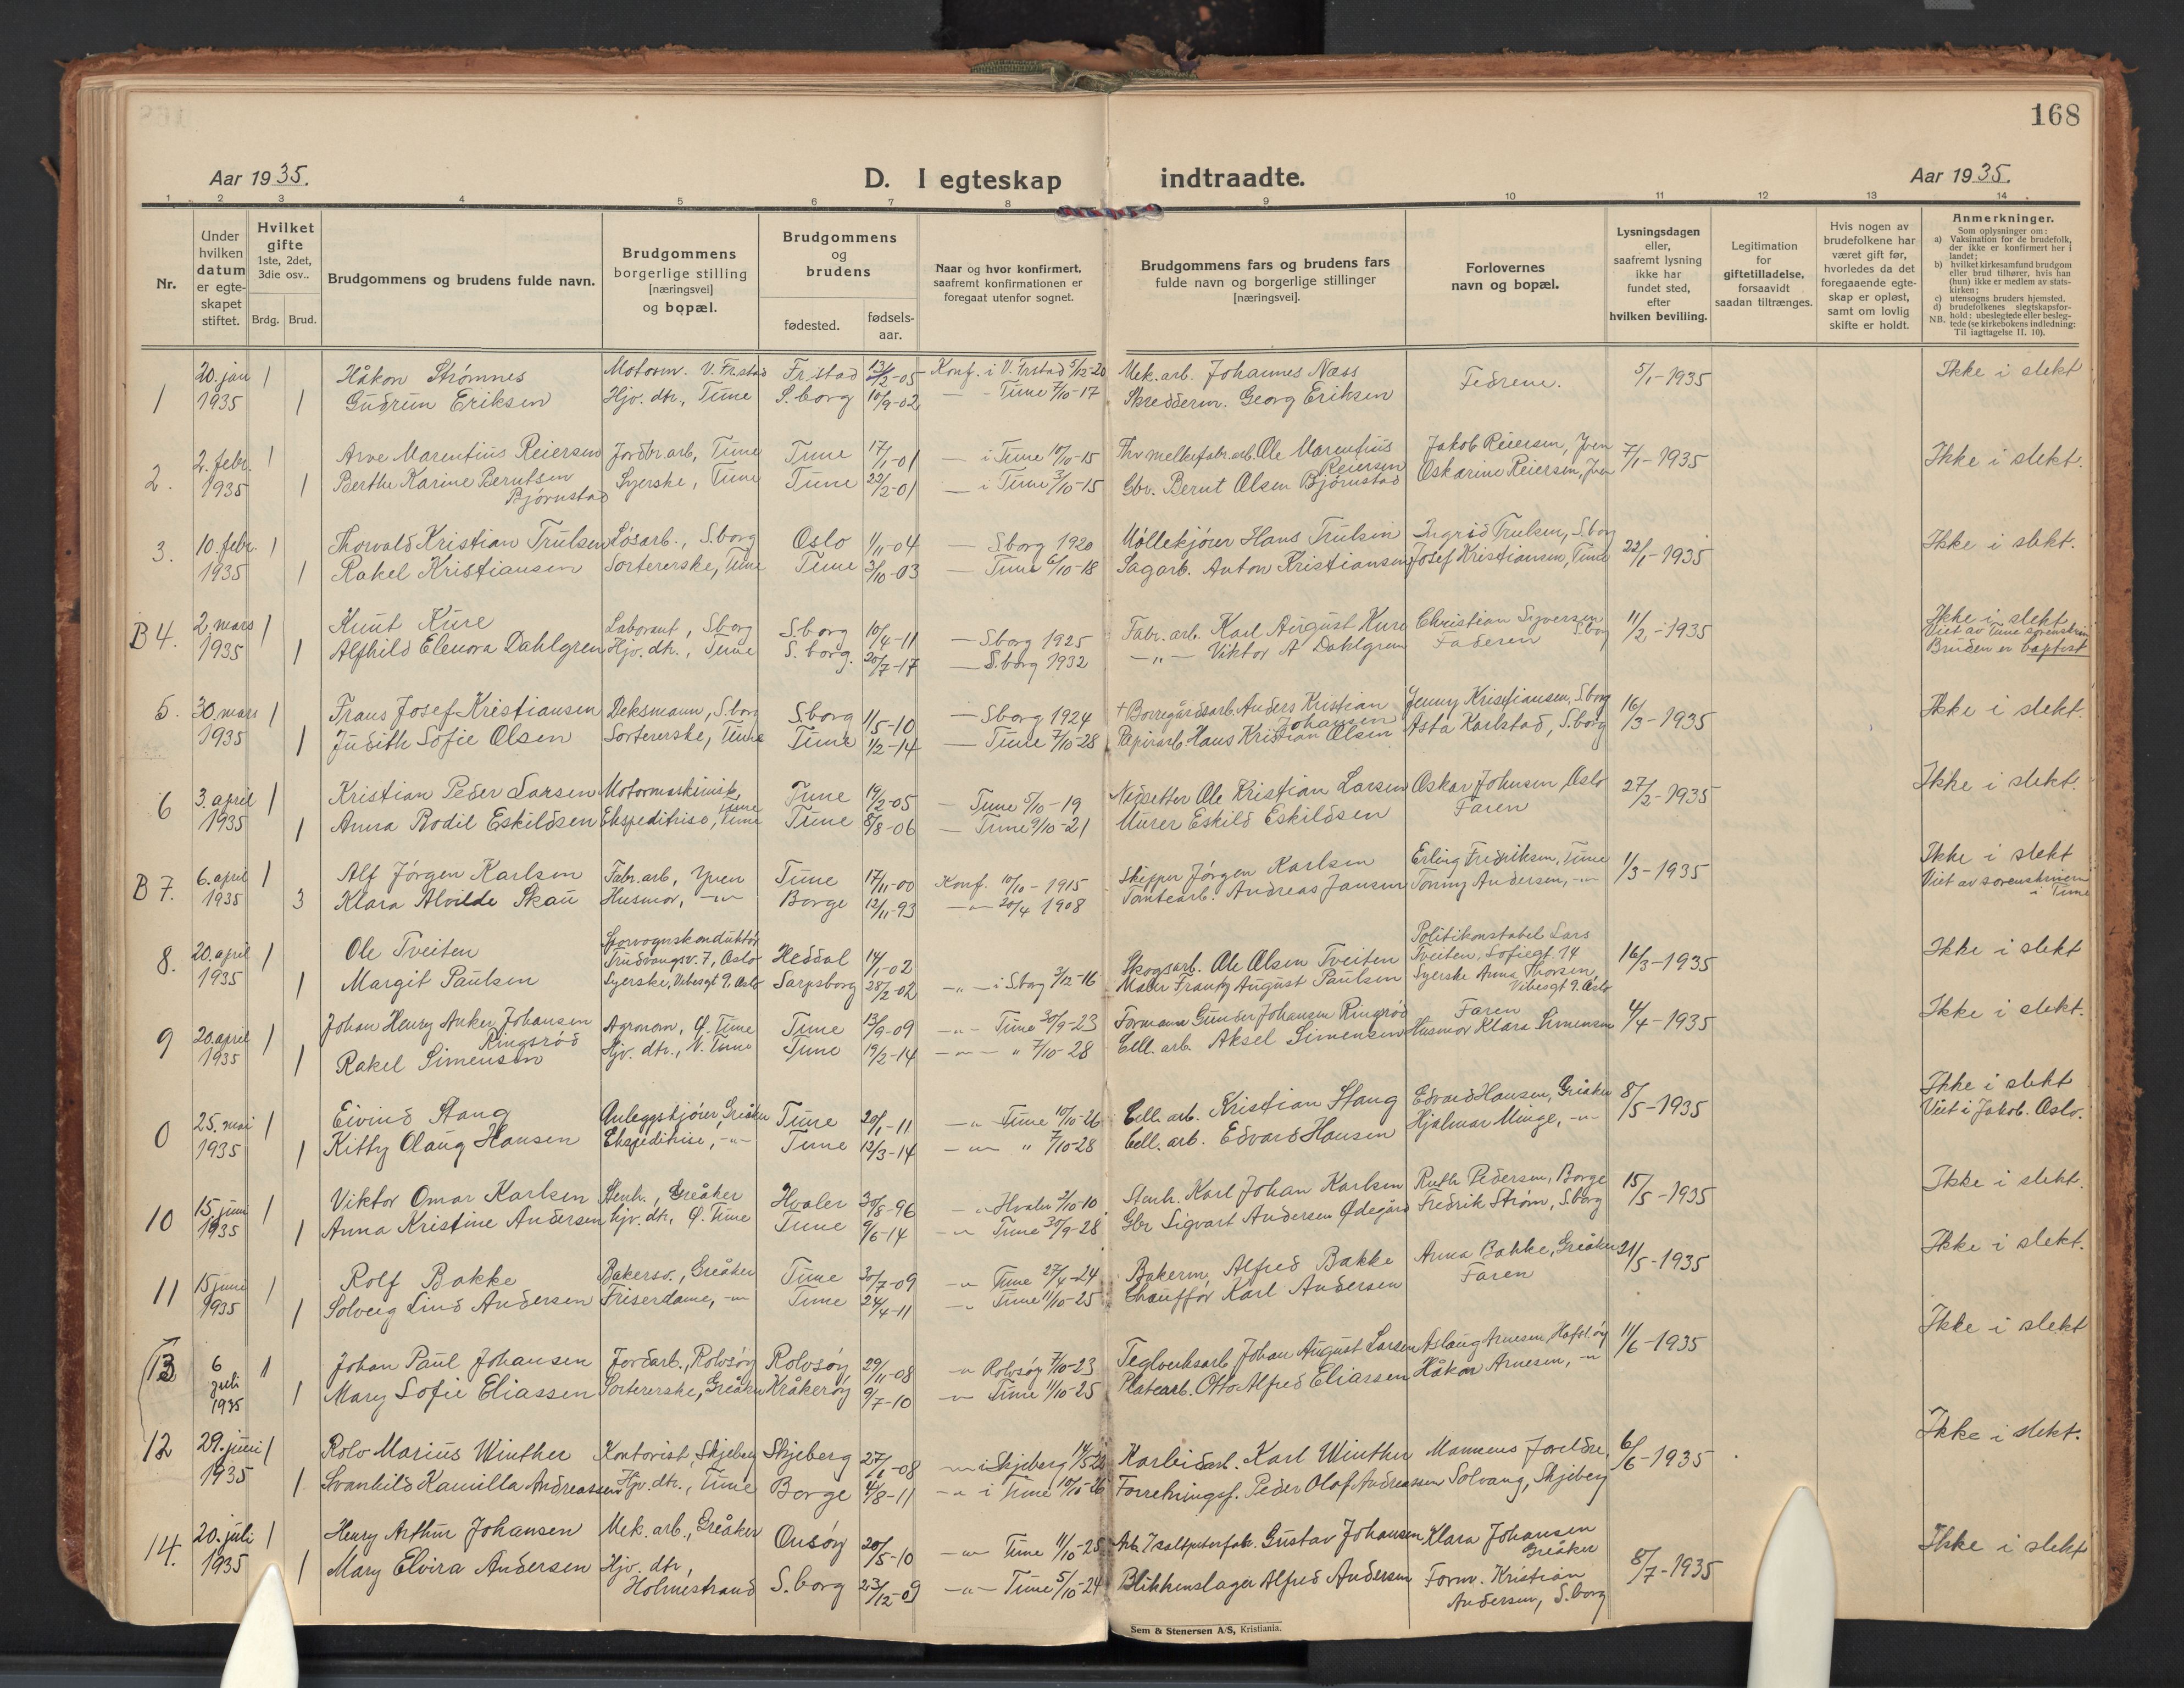 168
Aar 1935.
D. I egteskap indtraadte.
Aar 1935.
1 2 3 4 5 6 7 8 9 10 11 12 13 14
Nr.
Under hvilken datum er egteskapet stiftet.
Hvilket gifte 1ste, 2det, 3die osv..
Brdg. Brud.
Brudgommens og brudens fulde navn.
Brudgommens borgerlige stilling [næringsvei] og bopæl.
Brudgommens og brudens
fødested.
fødsels-aar.
Naar og hvor konfirmert, saafremt konfirmationen er foregaat utenfor sognet.
Brudgommens fars og brudens fars fulde navn og borgerlige stillinger [næringsvei].
Forlovernes navn og bopæl.
Lysningsdagen eller, saafremt lysning ikke har fundet sted, efter hvilken bevilling.
Legitimation for giftetilladelse, forsaavidt saadan tiltrænges.
Hvis nogen av brudefolkene har været gift før, hvorledes da det foregaaende egteskap er opløst, samt om lovlig skifte er holdt.
Anmerkninger.
Som oplysninger om:
a) Vaksination for de brudefolk, der ikke er konfirmert her i landet;
b) hvilket kirkesamfund brudgom eller brud tilhører, hvis han (hun) ikke er medlem av statskirken;
c) utensogns bruders hjemsted.
d) brudefolkenes slegtskapsforhold: ubeslegtede eller beslegtede (se kirkebokens indledning: Til iagttagelse II. 10).
NB.
1 20. jan 1 Håkon Strømnes Motorm. V. Fr.stad Fr.stad 13/2-05 Konf. i V. Frstad 5/12-20 Mek. arb. Johannes Næss Fedrene. 5/1-1935 Ikke i slekt
1935 1 Gudrun Eriksen Hjv. dtr., Tune S.borg 10/9-02 — - Tune 7/10-17 Skredderm. Georg Eriksen
2. 2. febr. 1 Arve Marentius Reiersen Jordbr. arb, Tune Tune 17/1-01 — i Tune 10/10-15 Ole Marentius Reiersen Jakob Reiersen, Yven 7/1-1935 Ikke i slekt.
1935 1 Berthe Karine Berntsen Bjørnstad Syerske, Tune Tune 22/2-01 — i Tune 3/10-15 Gbr. Bernt Olsen Bjørnstad Oskarine Reiersen, Yven
3. 10. febr. 1 Thorvald Kristian Trulsen Løsarb., S.borg Oslo 1/11-04 — S.borg 1920 Møllekjører Hans Trulsen Ingrid Trulsen, S.borg 22/1-1935 Ikke i slekt.
1935 1 Rakel Kristiansen Sortererske, Tune Tune 3/10-03 — Tune 6/10-18 Sagarb. Anton Kristiansen Josef Kristiansen, Tune
B 4. 2. mars 1 Knut Kure Laborant, S.borg S.borg 10/4-11 — S.borg 1925 Fabr. arb. Karl August Kure Christian Syversen S.borg 11/2-1935 Ikke i slekt
Viet av Tune sorenskriv
1935 1 Alfhild Elenora Dahlgren Hjv. dtr., Tune S.borg. 20/7-17 — S.borg 1932 —„— Viktor A Dahlgren Faderen Bruden er baptist
5. 30. mars 1 Frans Josef Kristiansen Deksmann, S.borg S.borg 11/5-10 — S.borg 1924 + Borregårdsarb. Anders Kristian Johansen Jenny Kristiansen, S.borg 16/3-1935 Ikke i slekt.
1935 1 Judith Sofie Olsen Sortererske, Tune Tune 1/2-14 — Tune 7/10-28 Papirarb. Hans Kristian Olsen Asta Karlstad, S.borg
6 3. april 1 Kristian Peder Larsen Motormaskinist, Tune Tune 19/2-05 — Tune 5/10-19 Ole Kristian Larsen Oskar Johnsen, Oslo 27/2-1935 Ikke i slekt.
1935 1 Anna Bodil Eskildsen Ekspeditrise, Tune Tune 8/8-06 — Tune 9/10-21 Murer Eskild Eskildsen Faren
B 7. 6. april 1 Alf Jørgen Karlsen Fabr. arb, Yven Tune 17/11-00 Konf. 10/10-1915 Skipper Jørgen Karlsen Erling Fredriksen, Tune 1/3-1935 Ikke i slekt
1935 3 Klara Alvilde Skau Husmor, -„- Borge 12/11-93 -„- 20/4 1908 Tomtearb. Andreas Jansen Tommy Andersen, -„- Viet av sorenskriveren i Tune
8. 20. april 1 Ole Tveiten Sporvognskonduktør Trudvangsv. 7, Oslo Heddal 14/1-02 Skogsarb. Ole Olsen Tveiten Politikonstabel Lars Tveiten, Sofiegt. 14 16/3-1935 Ikke i slekt
1935 1 Margit Paulsen Syerske, Vibesgt 9, Oslo Sarpsborg 28/2-02 -„- i S.borg 3/12-16 Maler Frantz August Paulsen Syerske Anna Thorsen, Vibesgt 9. Oslo
9 20. april 1 Johan Henry Anker Johansen Ringsrød Agronom, Ø. Tune Tune 13/9-09 -„- Tune 30/9-23 Formann Gunder Johansen Ringsrød Faren 4/4-1935 Ikke i slekt.
1935 1 Rakel Simensen Hjv. dtr., V. Tune Tune 19/2-14 -„- „ 7/10-28 Cell. arb. Aksel Simensen Husmor Klara Simensen
0 25. mai 1 Eivind Stang Anleggskjører, Greåker Tune 20/1-11 -„ Tune 10/10-26 Cell. arb. Kristian Stang Edvard Hansen, Greåker 8/5-1935 Ikke i slekt
1935 1 Kitty Olaug Hansen Ekspeditrise, -„- Tune 12/3-14 -„- „ 7/10-28 Cell. arb. Edvard Hansen Hjalmar Minge, -„- Viet i Jakob. Oslo.
10 15. juni 1 Viktor Omar Karlsen Stenh., Greåker Hvaler 30/8-96 -„ Hvaler 2/10-10 Stenh. Karl Johan Karlsen Ruth Pedersen, Borge 15/5-1935 Ikke i slekt.
1935 1 Anna Kristine Andersen Hjv. dtr, Ø. Tune Tune 9/6-14 -„ Tune 30/9-28 Gbr Sigvart Andersen Ødegård Fredrik Strøm, S.borg
11 15 juni 1 Rolf Bakke Bakersv., Greåker Tune 30/7-09 -„ Tune 27/4-24 Bakerm, Alfred Bakke Anna Bakke, Greåker 21/5-1935 Ikke i slekt.
1935 1 Solveig Lind Andersen Friserdame, -„- Tune 24/4-11 -„ Tune 11/10-25 Chauffør Karl Andersen Faren
13 6 juli 1935 1 Johan Paul Johansen Jordarb., Rolvsøy Rolvsøy 29/11-08 -„ Rolvsøy 7/10-23 Teglverksarb. Johan August Larsen Aslaug Arnesen, Hafsl.øy 11/6-1935 Ikke i slekt
1 Mary Sofie Eliassen Sortererske, Greåker Kråkerøy 9/7-10 -„ Tune 11/10-25 Platearb. Otto Alfred Eliassen Håkon Arnesen, -„
12 29. juni 1 Rolv Marius Winther Kontorist, Skjeberg Skjeberg 27/6-08 -„- i Skjeberg Karbidarb. Karl Winther Mannens foreldre, 6/6-1935 Ikke i slekt.
1935 1 Svanhild Kamilla Andreassen Hjv. dtr., Tune Borge 4/8-11 -„ i Tune 10/10-26 Forretningsf. Peder Olaf Andreassen Solvang, Skjeberg
14. 20. juli 1 Henry Arthur Johansen Mek. arb., Greåker Onsøy 20/5-10 -„- Tune 11/10-25 Arb. i saltpeterfabr. Gustav Johansen Klara Johansen Greåker 8/7-1935 Ikke i slekt
1935 1 Mary Elvira Andersen Hjv. dtr, Holmestrand S.borg 23/12-09 -„- Tune 5/10-24 Blikkenslager Alfred Andersen Formr. Kristian Andersen, S.borg
Sem & Stenersen A/S, Kristiania.